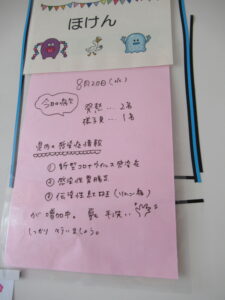 ほけん
8月20日(水)
今日の病欠
発熱… 2名
様子見… 1名
県内の感染症情報
① 新型コロナウイルス感染症
② 感染性胃腸炎
③ 伝染性紅斑(りんご病)
が増加中。 手洗い
しっかり行いましょう。